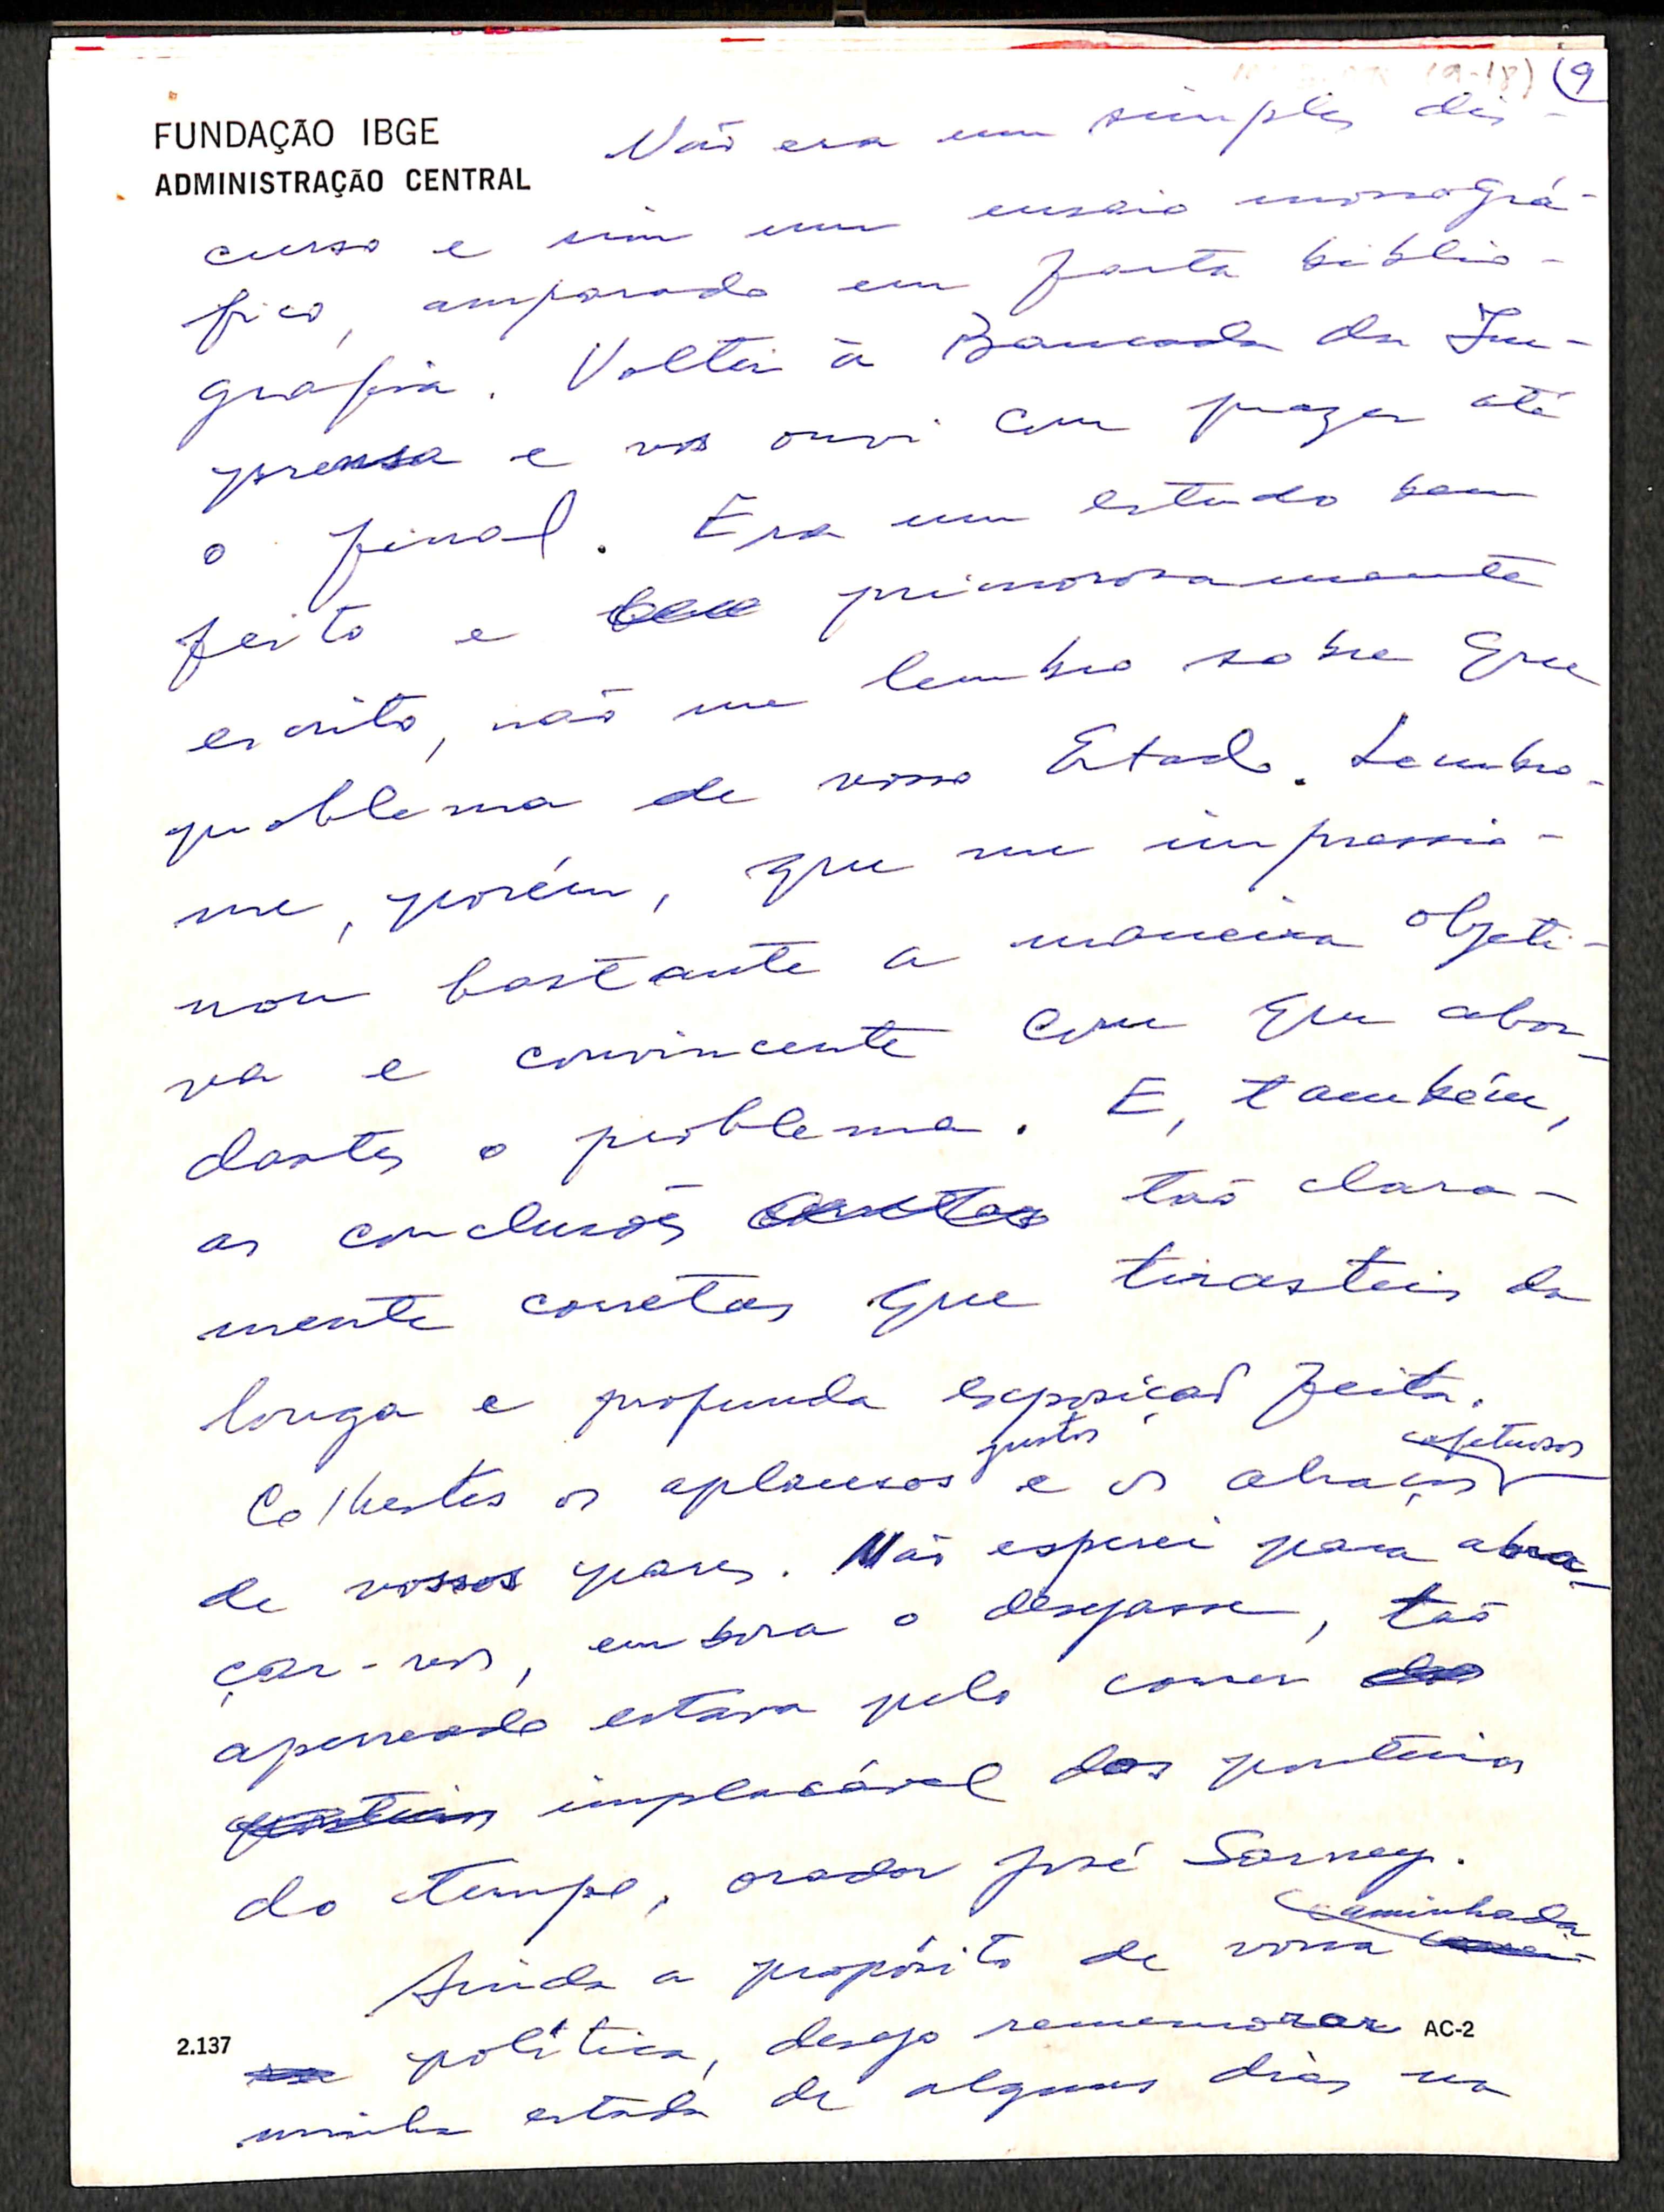 (9-18) (9
FUNDAÇÃO IBGE
ADMINISTRAÇÃO CENTRAL
Não era um simples dis-
curso e sim um ensaio monográ-
fico, amparado em farta biblio-
grafia. Voltei à Bancada da Im-
prensa e vos ouvi com prazer até
o final. Era um estudo bem
feito e bem primorosamente
escrito, não me lembro sobre que
problema de vosso Estado. Lembro-
me, porém, que me impressio-
nou bastante a maneira objeti-
va e convincente com que abor-
dastes o problema. E, também,
as conclusões tão clara-
mente corretas que tirasteis da
longa e profunda exposição feita.
justos afetuosos
Colhestes os aplausos e os abraços
de vossos pares. Não esperei para abra-
çar-vos, embora o desejasse, tão
aperreado estava pelo correr
ponteiros implacável dos ponteiros
do tempo, orador José Sarney.
caminhada
Ainda a propósito de vossa
política, desejo rememorar
2.137 AC-2
minha estada de alguns dias na